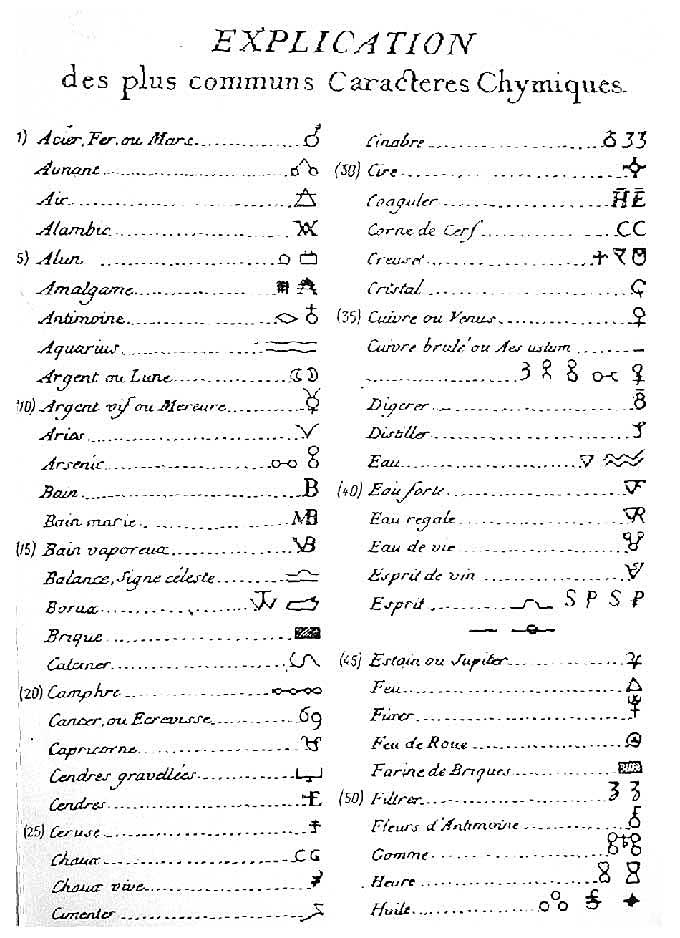 EXPLICATION
des plus communs Caracteres Chymiques.
1) Acier, Fer, ou Mars
Aunant
Air
Alambic
5) Alun
Amalgame
Antimoine
Aquarius
Argent ou Lune
10) Argent vif ou Mercure
Aries
Arsenic
Bain B
Bain marie MB
(15) Bain vaporeux VB
Balance, Signe céleste
Borax
Brique
Calciner
(20) Camphre
Cancer, ou Ecrevisse 69
Capricorne
Cendres gravellées
Cendres
(25) Ceruse
Chaux C G
Chaux vive
Cimenter
Cinabre 33
(30) Cire
Coaguler H E
Corne de Cerf CC
Creuset
Cristal
(35) Cuivre ou Venus
Cuivre brulé ou Aes ustum
3
Digerer
Distiller
Eau
(40) Eau forte
Eau regale
Eau de vie
Esprit de vin
Esprit S P S P
(45) Estain ou Jupiter
Feu
Fixer
Feu de Roue
Farine de Briques
(50) Filtrer
Fleurs d'Antimoine
Gomme
Heure
Huile